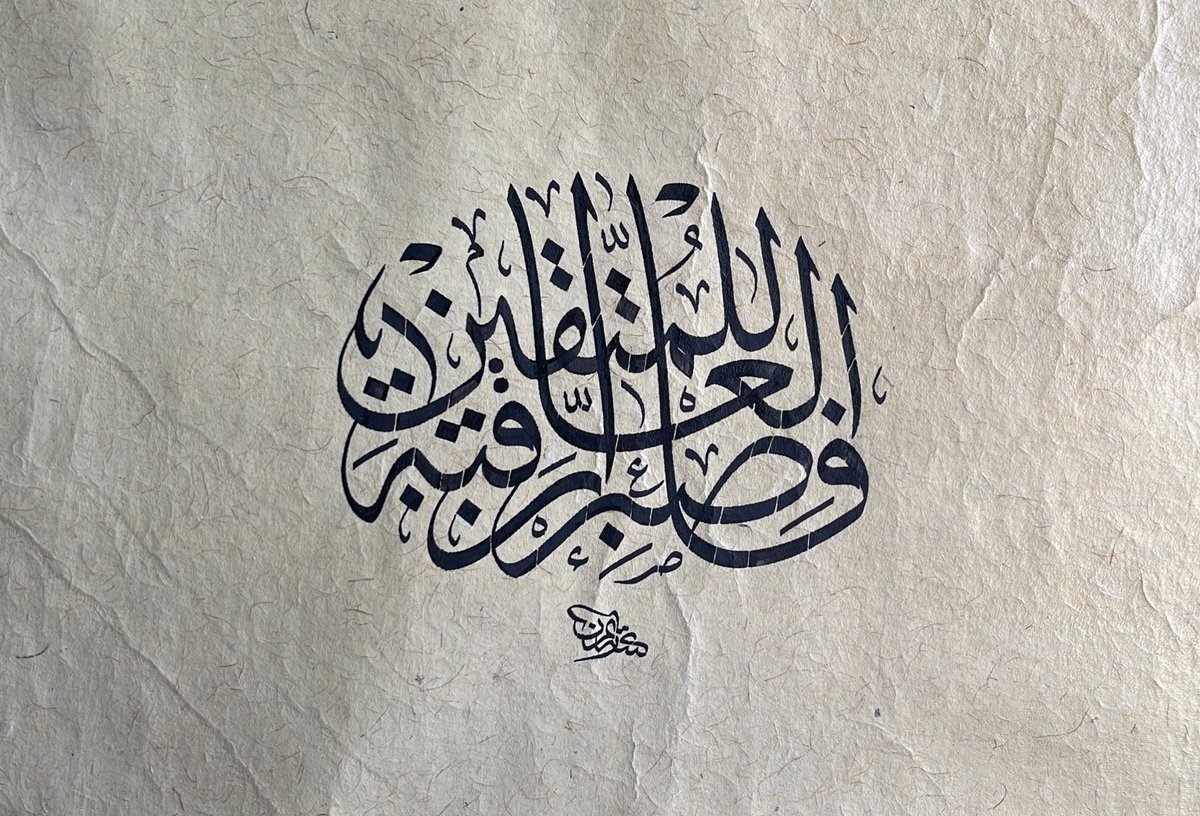 فاصبر إن العاقبة للمتقين